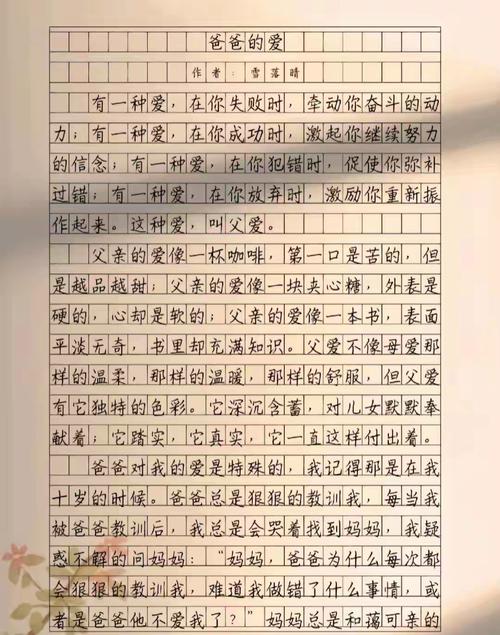 爸爸的爱
作者：雪落晴
有一种爱，在你失败时，牵动你奋斗的动
力；有一种爱，在你成功时，激起你继续努力
的信念；有一种爱，在你犯错时，促使你弥补
过错；有一种爱，在你放弃时，激励你重新振
作起来。这种爱，叫父爱。
父亲的爱像一杯咖啡，第一口是苦的，但
是越品越甜；父亲的爱像一块夹心糖，外表是
硬的，心却是软的；父亲的爱像一本书，表面
平淡无奇，书里却充满知识。父爱不像母爱那
样的温柔，那样的温暖，那样的舒服，但父爱
有它独特的色彩。它深沉含蓄，对儿女默默奉
献着；它踏实，它真实，它一直这样付出着。
爸爸对我的爱是特殊的，我记得那是在我
十岁的时候。爸爸总是狠狠的教训我，每当我
被爸爸教训后，我总是会哭着找到妈妈，我疑
惑不解的问妈妈：“妈妈，爸爸为什么每次都
会狠狠的教训我，难道我做错了什么事情，或
者是爸爸他不爱我了？”妈妈总是和蔼可亲的